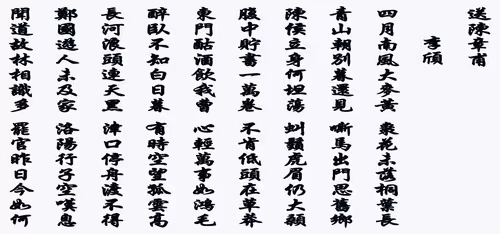 送陳章甫
李頎
四月南風大麥黃 棗花未落桐葉長
青山朝別暮還見 嘶馬出門思舊鄉
陳侯立身何坦蕩 虯鬚虎眉仍大顙
腹中貯書一萬卷 不肯低頭在草莽
東門酤酒飲我曹 心輕萬事如鴻毛
醉臥不知白日暮 有時空望孤雲高
長河浪頭連天黑 津口停舟渡不得
鄭國遊人未及家 洛陽行子空嘆息
聞道故林相識多 罷官昨日今如何